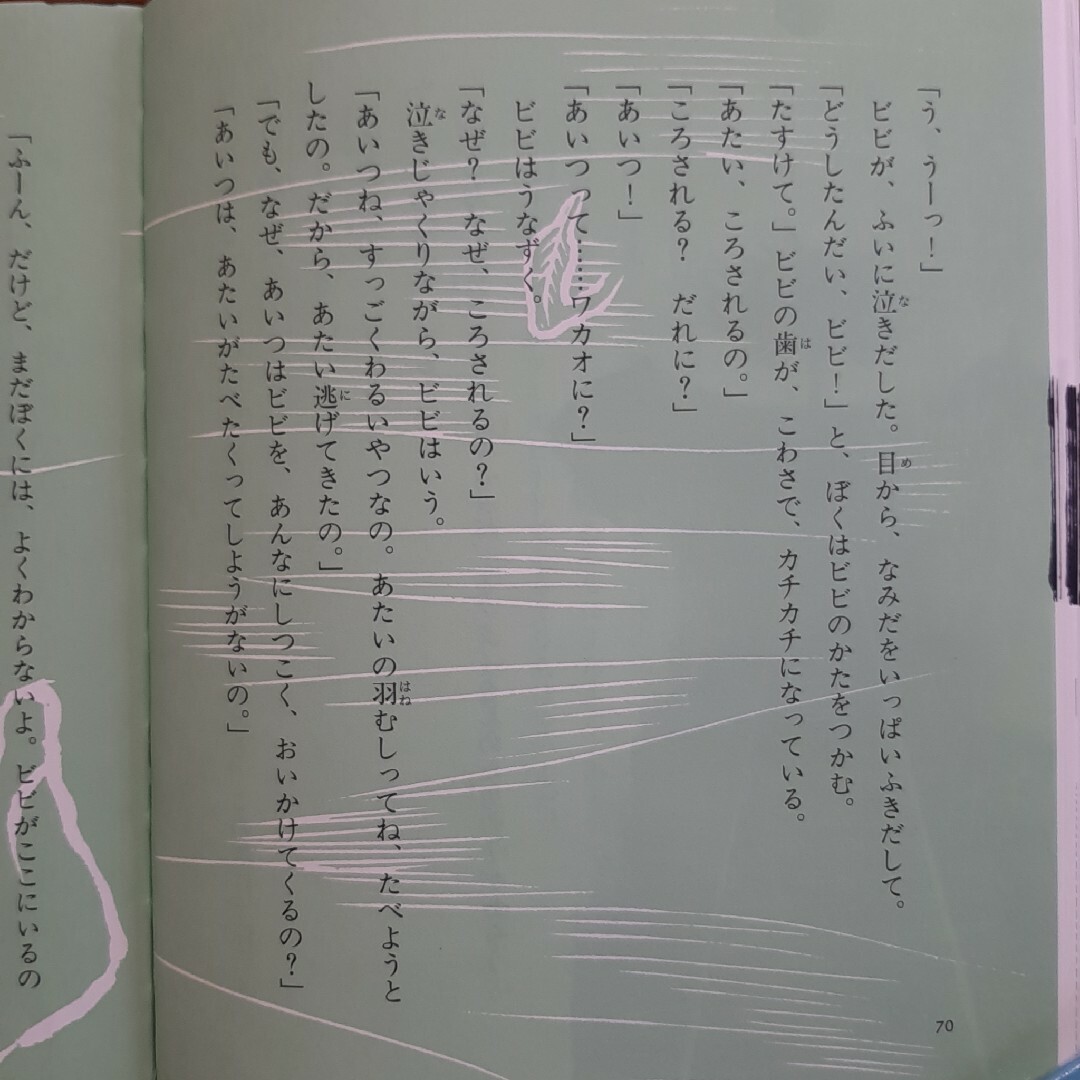 「う、うーっ！」
ビビが、ふいに泣きだした。目から、なみだをいっぱいふきだして。
「どうしたんだい、ビビ！」と、ぼくはビビのかたをつかむ。
「たすけて。」ビビの歯が、こわさで、カチカチになっている。
「あたい、ころされるの。」
「ころされる？　だれに？」
「あいつ！」
「あいつって……ワカオに？」
ビビはうなずく。
「なぜ？　なぜ、ころされるの？」
泣きじゃくりながら、ビビはいう。
「あいつね、すっごくわるいやつなの。あたいの羽むしってね、たべようと
したの。だから、あたい逃げてきたの。」
「でも、なぜ、あいつはビビを、あんなにしつこく、おいかけてくるの？」
「あいつは、あたいがたべたくってしようがないの。」
「ふーん、だけど、まだぼくには、よくわからないよ。ビビがここにいるの
70